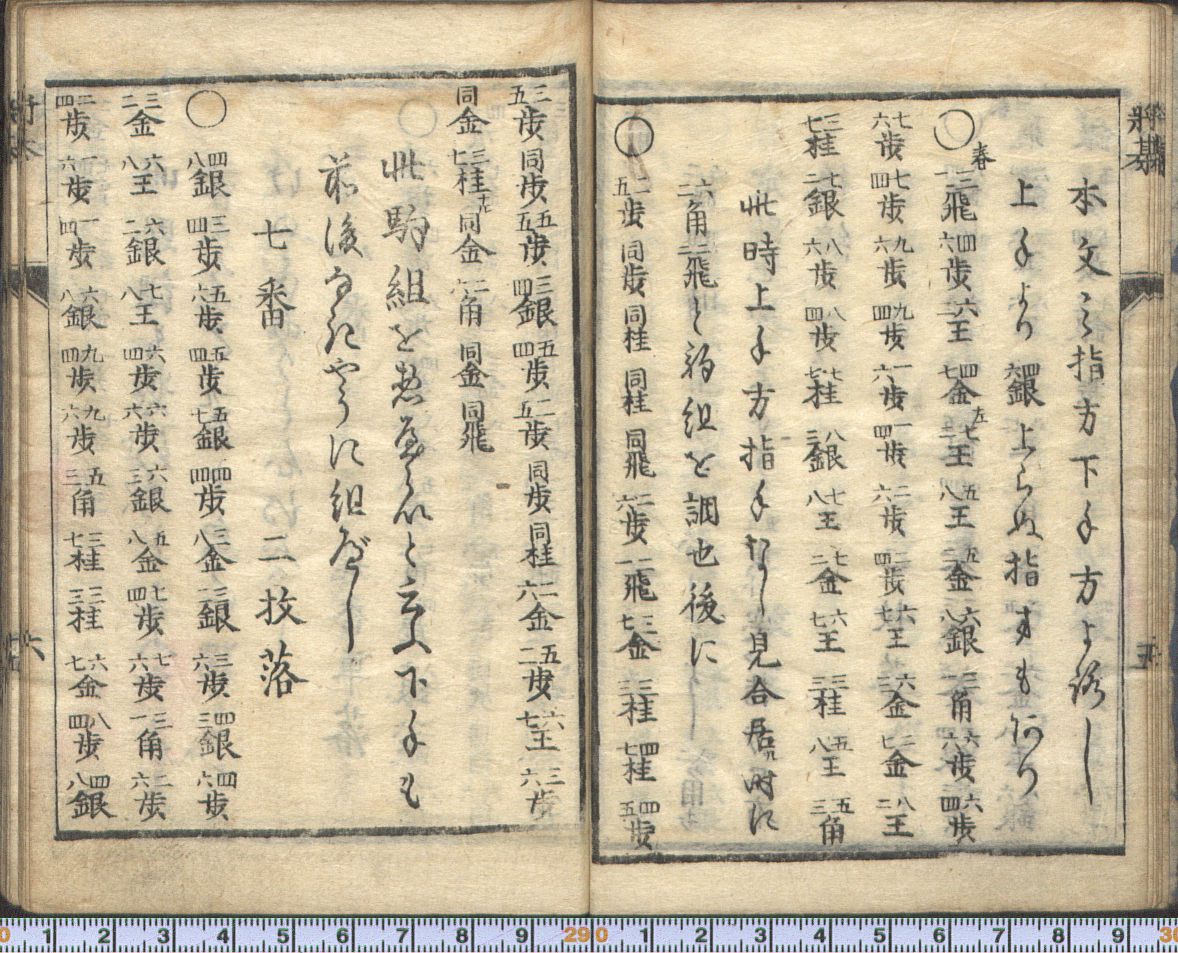 将棊
本文之指方下手方よろし
上手より六四銀上らぬ指方も有り
○春三二飛 四六歩 六二王 四七金左 七二王 五八王 五二金 六八銀 三一角 六六歩 六四歩
七六歩 七四歩 九六歩 九四歩 一六歩 一四歩 二六歩 二四歩 六七王 六三金 二七金 八二王
三七桂 七二銀 八六歩 八四歩 七七桂 八三銀 七八王 七二金 六七王 三三桂 五八王 五三角
此時上手方指手なし見合居ル時に
六二角 三二飛と駒組を調也後に
○二五歩 同歩 同桂 同桂 同飛 二六歩 二一飛 三七金 三三桂 四七桂 四五歩
五
三五歩 同歩 五五歩 三四銀 五四歩 二五歩 同歩 同桂 二六金 五二歩 六七王 三六歩
同金 三七桂ナル 同金 二六角 同金 同飛
此駒組を惣ならしと云ふ下手も
前後なきやうに組べし
七番 二枚落
○四八銀 三四歩 五六歩 五四歩 五七銀 四四歩 三八金 三二銀 三六歩 四三銀 四六歩
三二金 六八王 六二銀 七八王 六四歩 六六歩 六三銀 五八金 七四歩 七六歩 三一角 二六歩
二四歩 一六歩 一四歩 六八銀 九四歩 九六歩 五三角 三七桂 三三桂 六七金 八四歩 四八銀
六